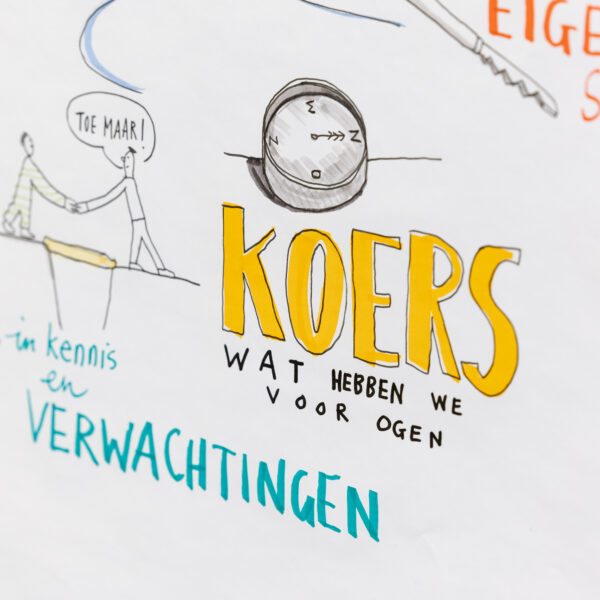 EIGE
S
TOE MAAR!
KOERS
WAT HEBBEN WE
VOOR OGEN
in kennis
en
VERWACHTINGEN